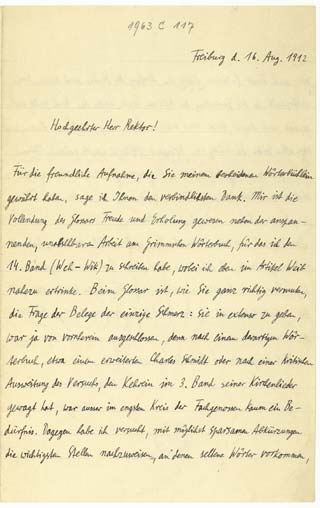 1963 C 117
Freiburg d. 16. Aug. 1912
Hochgeehrter Herr Rektor!
Für die freundliche Aufnahme, die Sie meinem bescheidenen Wörterbüchlein
gewährt haben, sage ich Ihnen den verbindlichsten Dank. Mir ist die
Vollendung des Glossars Freude und Erholung gewesen neben der anspan-
nenden, unabsehbaren Arbeit am Grimmschen Wörterbuch, für das ich den
14. Band (Weh - Wik) zu schreiben habe, wobei ich eben im Artikel Weit
nahezu ertrinke. Beim Glossar ist, wie Sie ganz richtig vermuten,
die Frage der Belege der einzige Schmerz: sie in extenso zu geben,
war ja von vornherein ausgeschlossen, denn nach einem derartigen Wör-
terbuch, etwa einem erweiterten Charles Schmidt oder nach einer kritischen
Ausweitung des Versuchs, den Kehrein im 3. Band seiner Kirchenlieder
gewagt hat, war immer im engsten Kreis der Fachgenossen kaum ein Be-
dürfnis. Dagegen habe ich versucht, mit möglichst sparsamen Abkürzungen
die wichtigsten Stellen nachzuweisen, an denen seltene Wörter vorkommen,